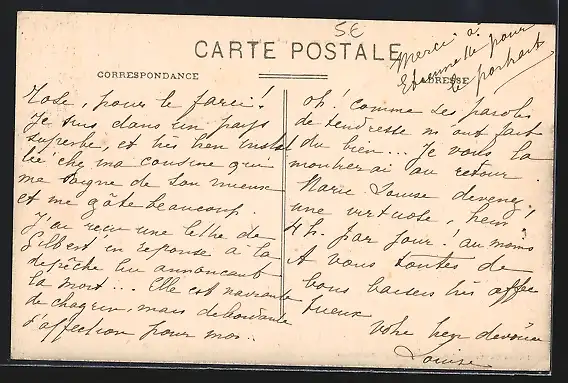 5€
CARTE POSTALE
CORRESPONDANCE
ADRESSE
Merci à
Etiennette pour
le portrait
Zose, pour le farci!
Je suis dans un pays
superbe, et très bien instal
lée chez ma cousine qui
me soigne de son mieux
et me gâte beaucoup.
J'ai reçu une lettre de
Gilbert en réponse à la
dépêche lui annonçant
la mort... Elle est navrante
de chagrin, mais débordante
d'affection pour moi.
Oh! comme ses paroles
de tendresse m'ont fait
du bien... Je vous la
montrerai au retour.
Marie Louise devenez
une virtuose, hein!
4 h. par jour! au moins
A vous toutes de
bons baisers très affec
tueux
Votre bien dévouée
Louise